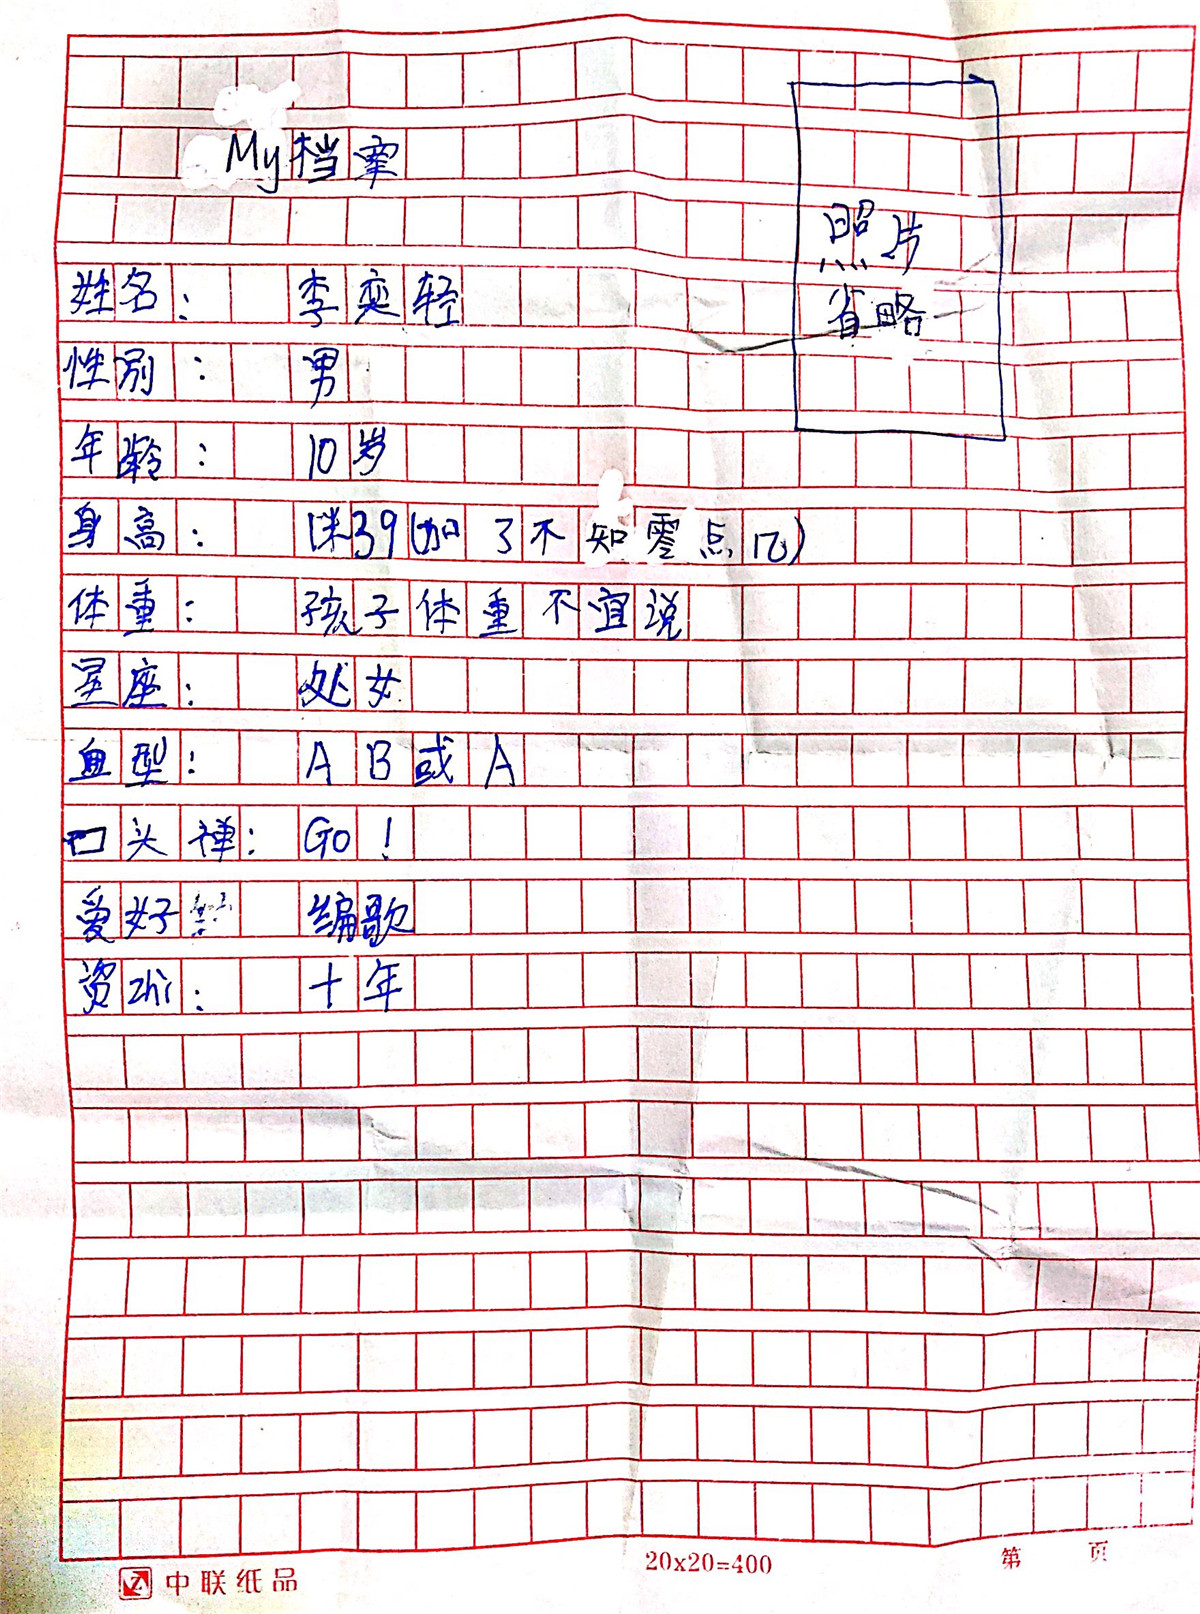 My档案
照片
省略
姓名： 李奕轻
性别： 男
年龄： 10岁
身高： 1米39(加了不知零点几)
体重： 孩子体重不宜说
星座： 处女
血型： AB或A
口头禅： Go！
爱好： 编歌
资zhi： 十年
中联纸品
20x20=400
第 页